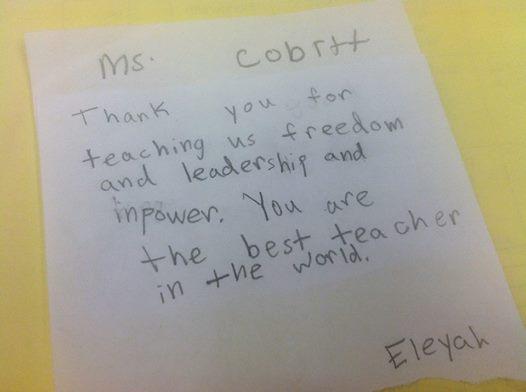 Ms. Cobrtt
Thank you for
teaching us freedom
and leadership and
inpower. You are
the best teacher
in the world.
Eleyah